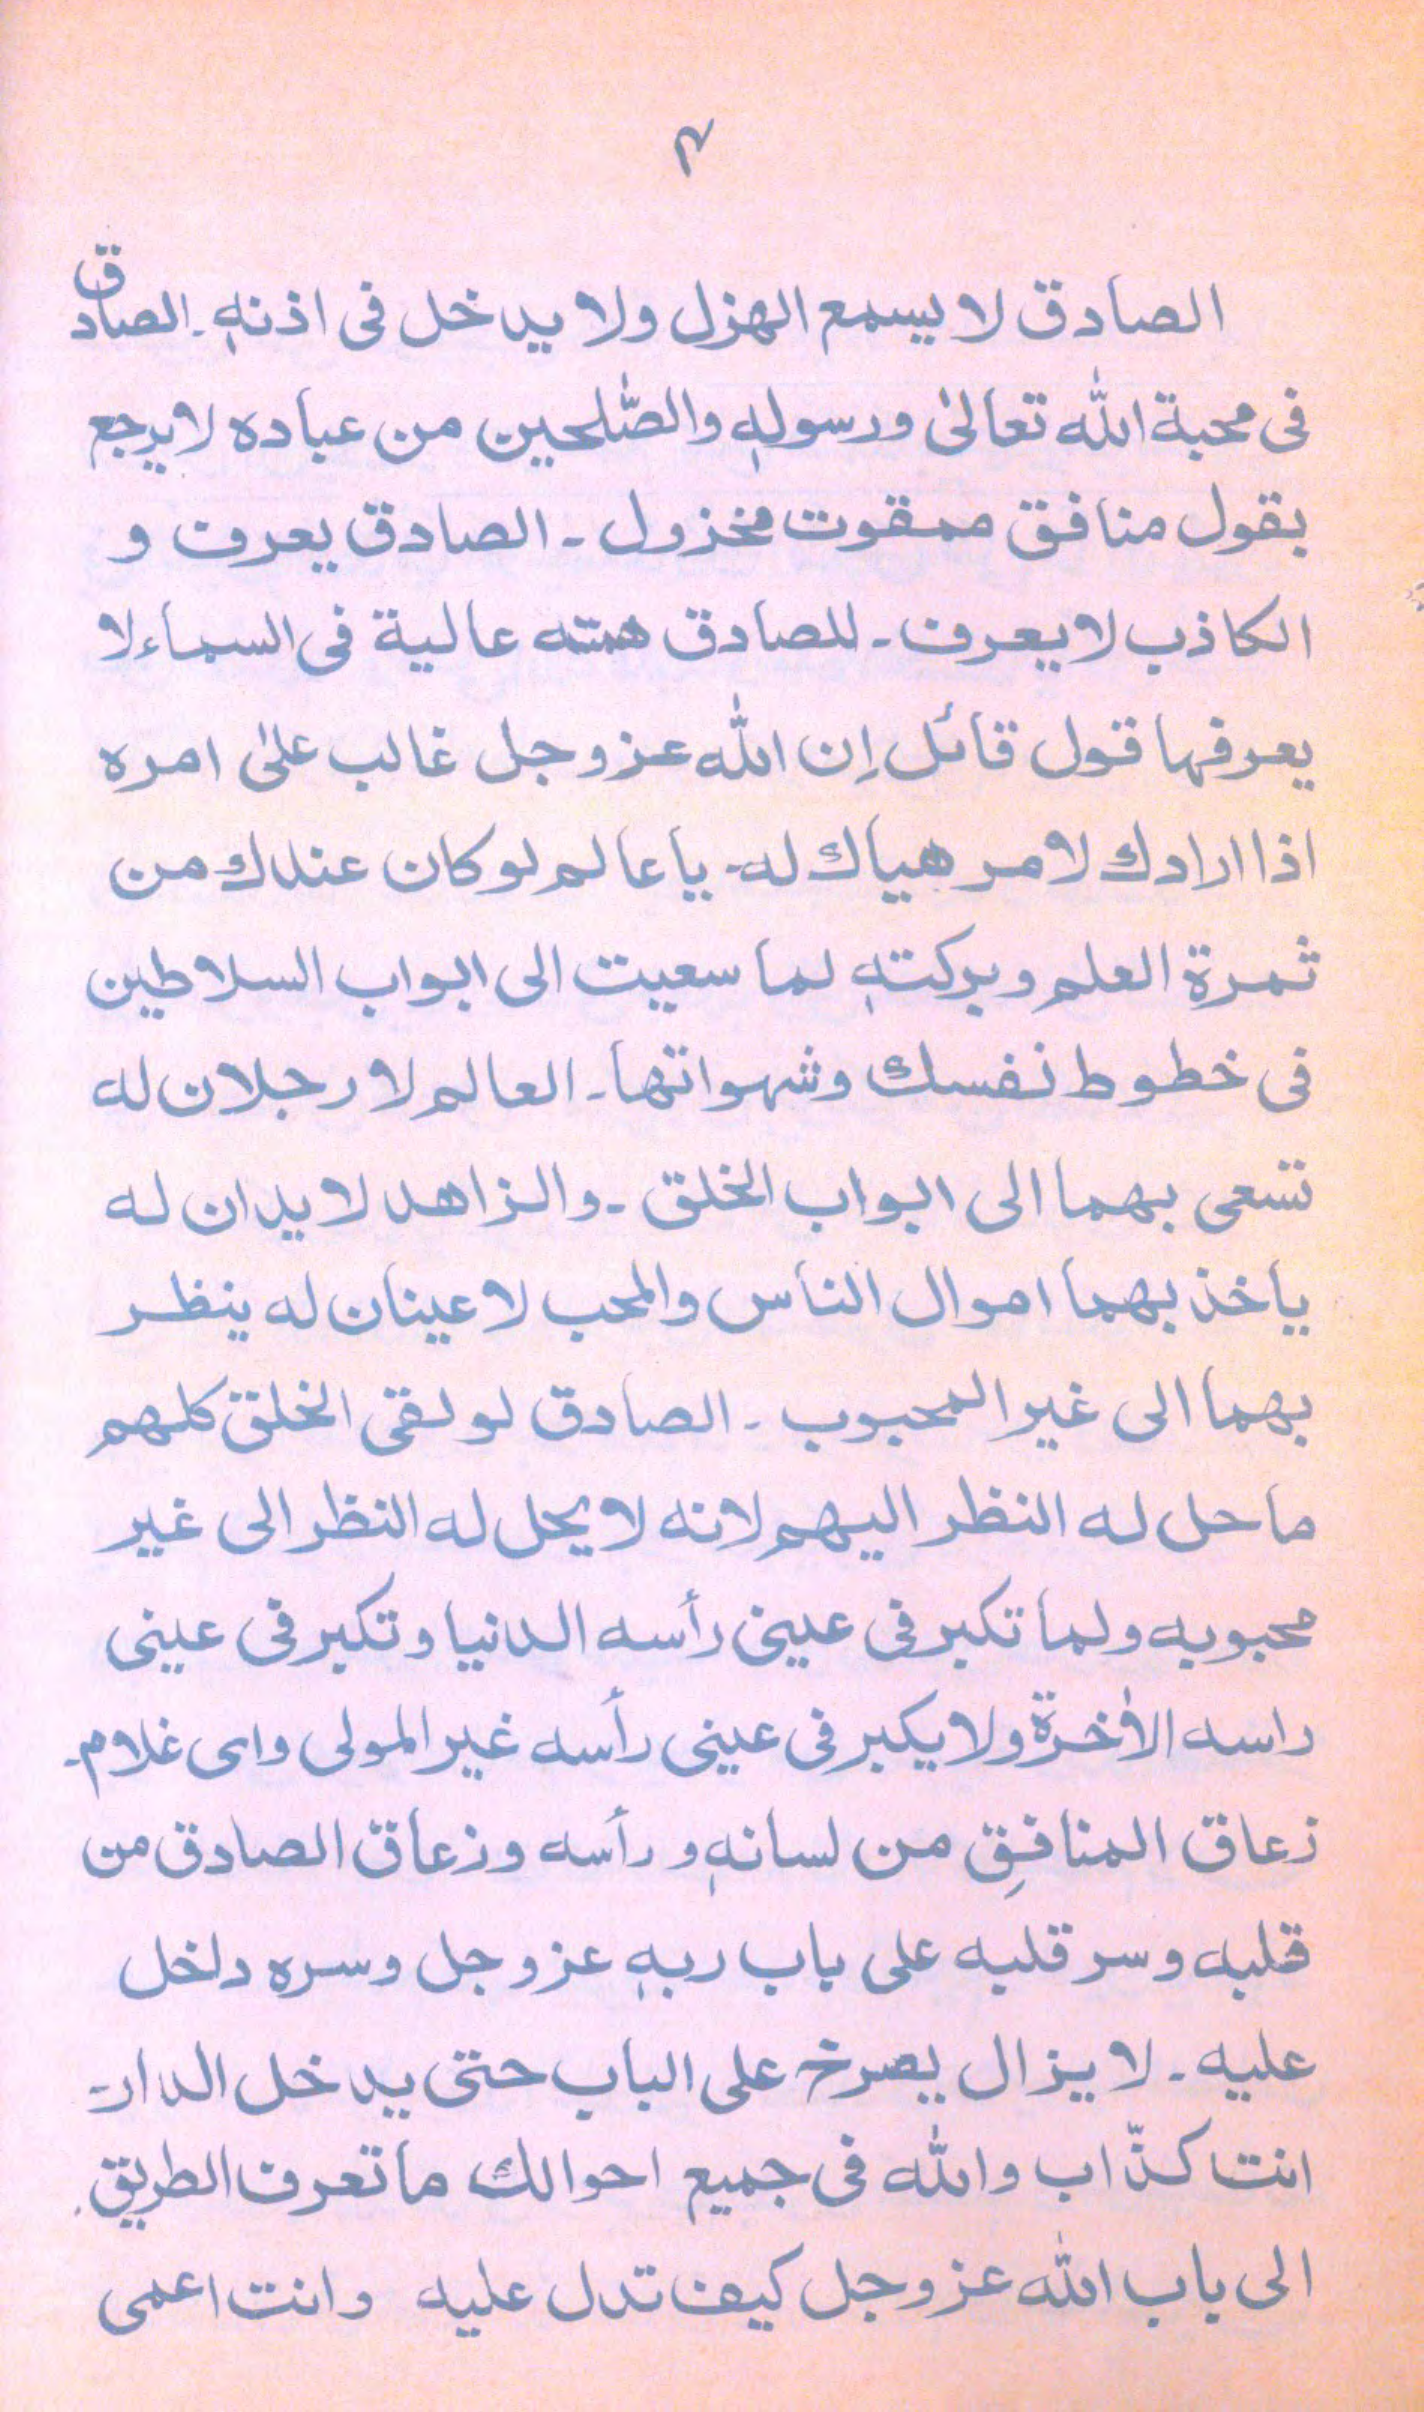 ۴
الصادق لا يسمع الهزل ولا يدخل فى اذنهٖ۔ الصادق
فى محبة الله تعالىٰ ورسولهٖ والصّٰلحين من عباده لا يرجع
بقول منافق ممقوت مخزول ۔ الصادق يعرف و
الكاذب لا يعرف ۔ للصادق همته عالية فى السماء لا
يعرفها قول قائل إن الله عز وجل غالب علىٰ امره
اذا ارادك لامر هياك له۔ يا عالم لو كان عندك من
ثمرةِ العلم وبركتهٖ لما سعيت الى ابواب السلاطين
فى خطوط نفسك وشهواتها۔ العالم لا رجلان له
تسعى بهما الى ابواب الخلق ۔ والزاهد لا يدان له
ياخذ بهما اموال الناس والمحب لا عينان له ينظر
بهما الى غير المحبوب ۔ الصادق لو لقى الخلق كلهم
ما حل له النظر اليهم لانه لا يحل له النظر الى غير
محبوبه ولما تكبر فى عينى رأسه الدنيا وتكبر فى عينى
راسه الأخرة ولا يكبر فى عينى رأسه غير المولى واى غلام۔
زعاق المنافقِ من لسانهٖ و رأسه وزعاق الصادق من
قلبه وسر قلبه على باب ربهٖ عز وجل وسره داخل
عليه ۔ لا يزال يصرخ على الباب حتى يدخل الدار۔
انت كذّاب والله فى جميع احوالك ما تعرف الطريق۔
الى باب الله عز وجل كيف تدل عليه وانت اعمى